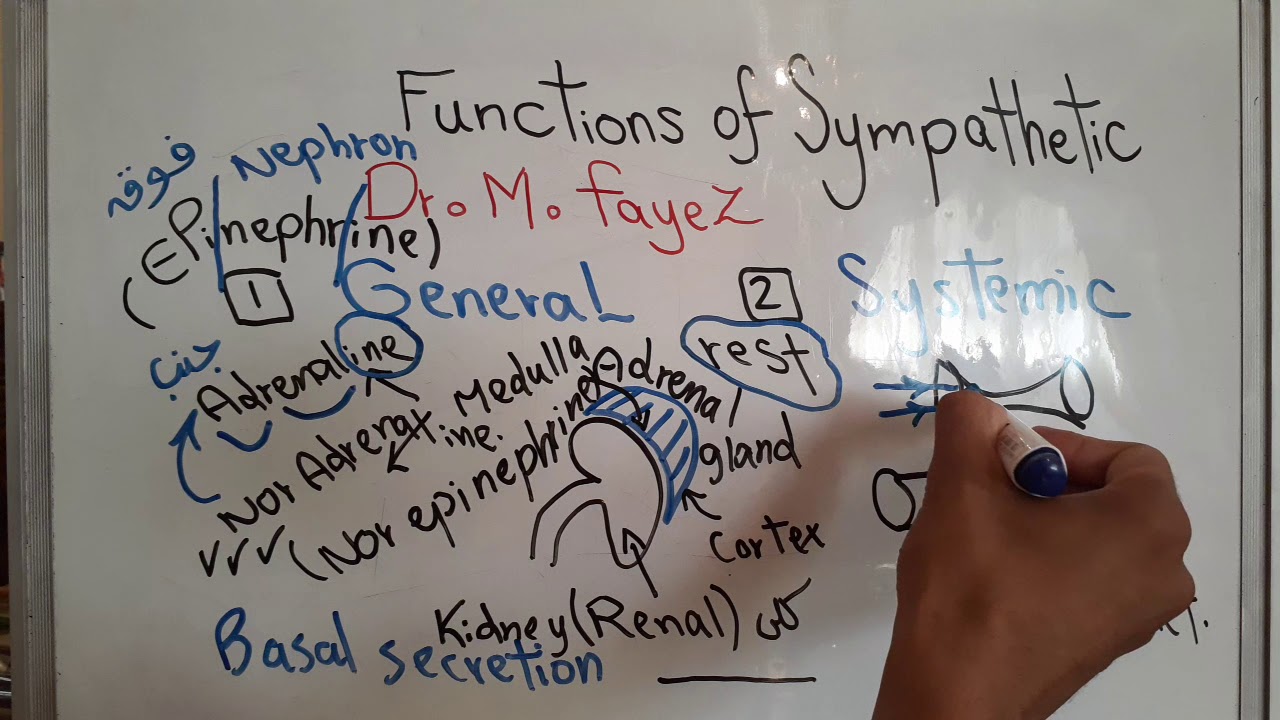 Functions of Sympathetic
فوق Nephron
Dr. M. Fayez
(Epinephrine)
1 General
2 Systemic
جنب
Adrenaline
rest
Medulla
Adrenal
gland
Nor Adrenaline.
(Nor epinephrine)
Cortex
Kidney (Renal)
Basal secretion